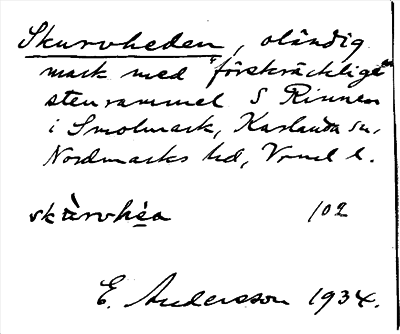 Skurvheden, oländig
mark med "förskräckligt"
stenrammel S Rinnen
i Smolmark, Karlanda sn,
Nordmarks hd, Vrml l.
skùrvhéa 102
E. Andersson 1934.